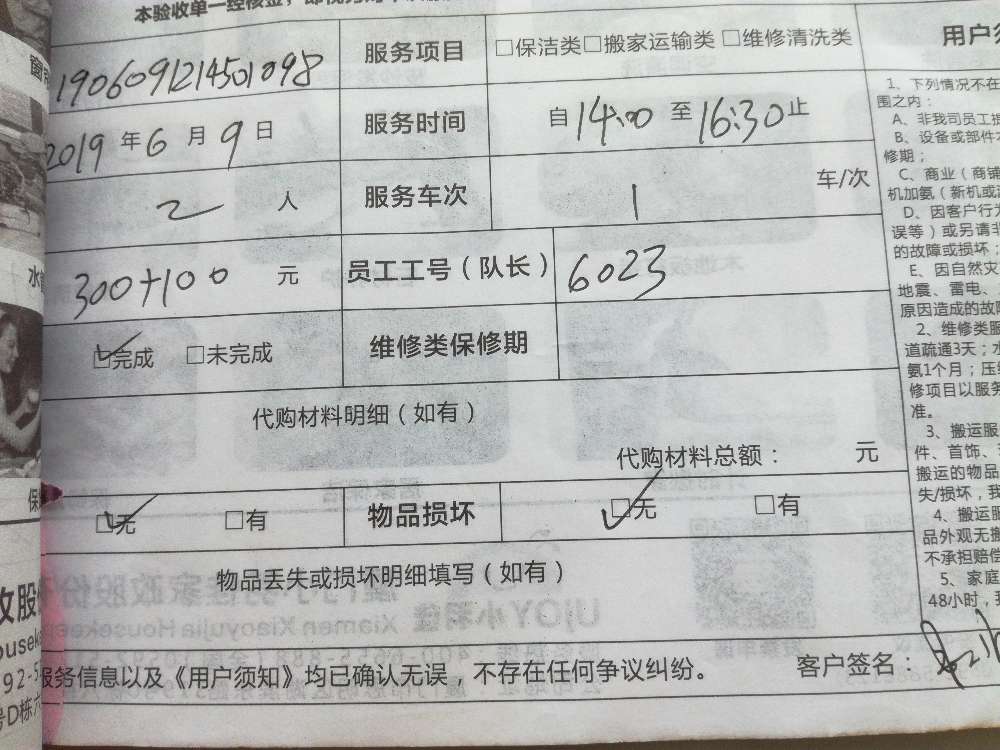 本验收单一经核签，
1906091214501098
服务项目
□保洁类□搬家运输类 □维修清洗类
用户须
2019年6月9日
服务时间
自14:00至16:30止
2 人
服务车次
1 车/次
300+100 元
员工工号（队长）
6023
□完成 □未完成
维修类保修期
代购材料明细（如有）
代购材料总额： 元
□无 □有
物品损坏
□无 □有
物品丢失或损坏明细填写（如有）
服务信息以及《用户须知》均已确认无误，不存在任何争议纠纷。
客户签名：
1、下列情况不在
围之内：
A、非我司员工
B、设备或部件
修期；
C、商业（商铺
机加氨（新机或
D、因客户行为
误等）或另请非
的故障或损坏；
E、因自然灾
地震、雷电、
原因造成的故障
2、维修类服
道疏通3天；水
氨1个月；压缩
修项目以服务
准。
3、搬运服
件、首饰、
搬运的物品
失/损坏，我
4、搬运服
品外观无搬
不承担赔偿
5、家庭
48小时，我
窗
水
保
股
housek
92-5
号D栋六
UJOY小羽佳家政股份
Xiamen Xiaoyujia Housekeep